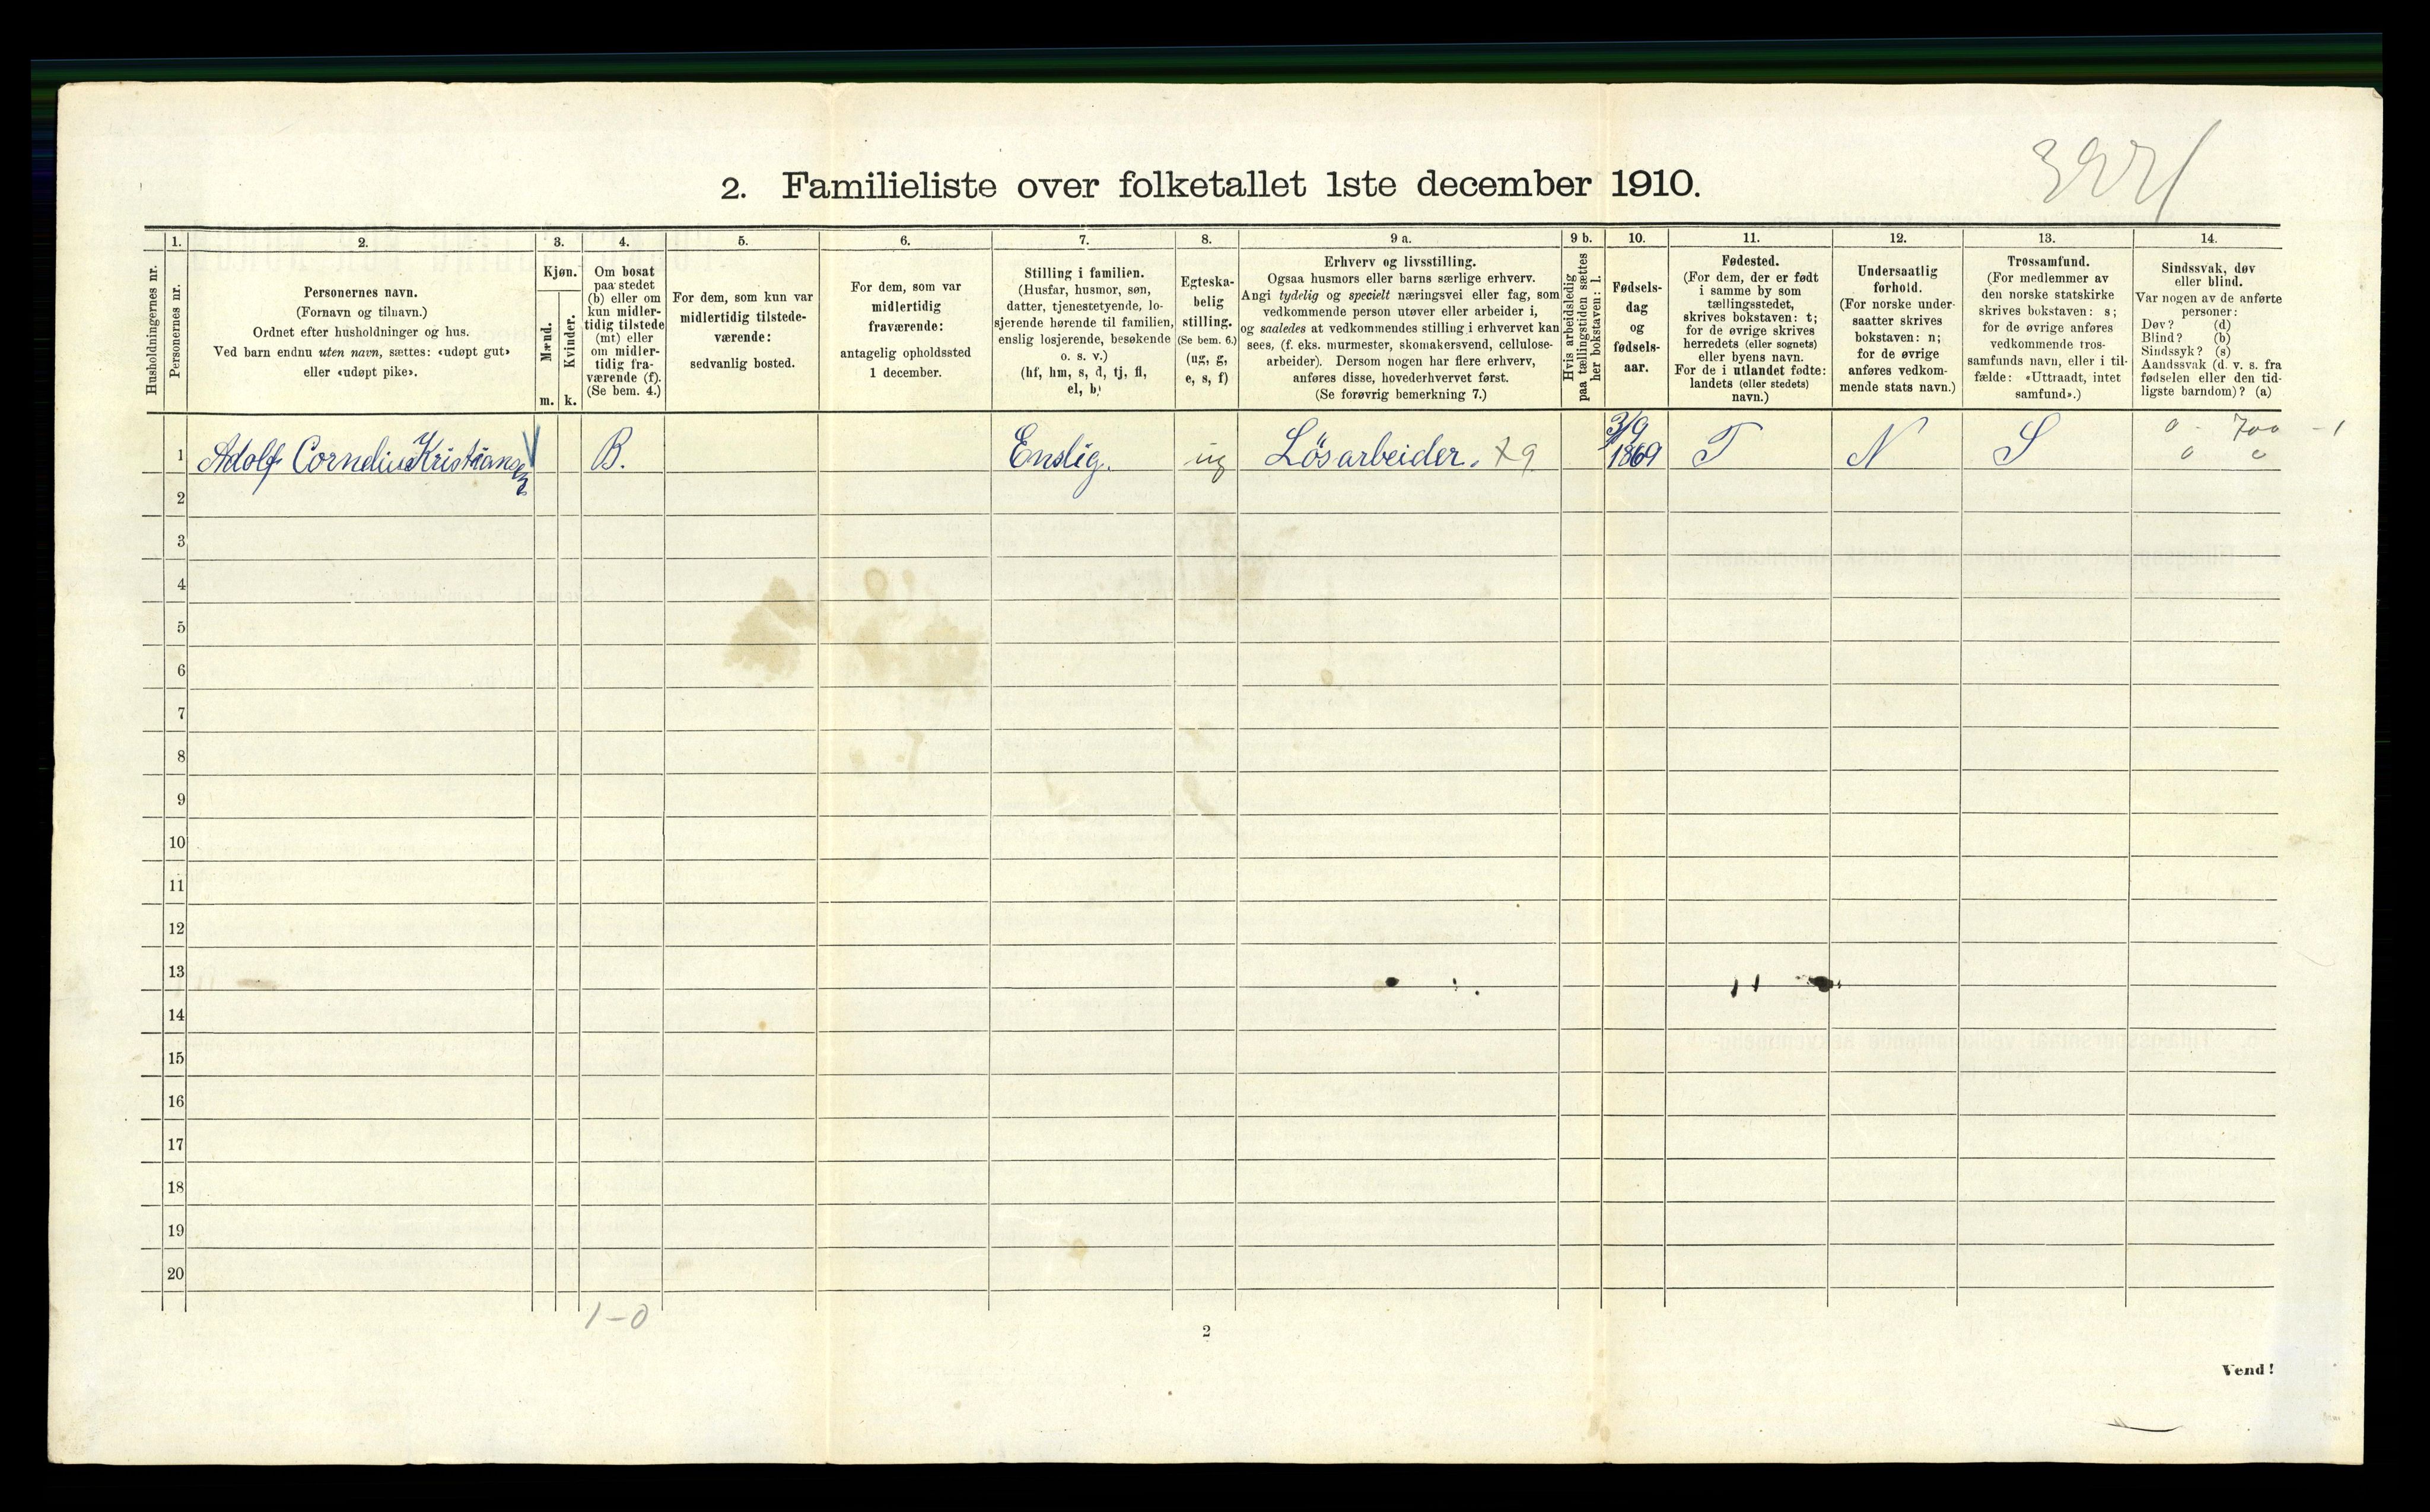 3221
2. Familieliste over folketallet 1ste december 1910.
Husholdningernes nr.
1.
Personernes nr.
2.
Personernes navn.
(Fornavn og tilnavn.)
Ordnet efter husholdninger og hus.
Ved barn endnu uten navn, sættes: «udøpt gut»
eller «udøpt pike».
3.
Kjøn.
Mænd.
m.
Kvinder.
k.
4.
Om bosat
paa stedet
(b) eller om
kun midler-
tidig tilstede
(mt) eller
om midler-
tidig fra-
værende (f).
(Se bem. 4.)
5.
For dem, som kun var
midlertidig tilstede-
værende:
sedvanlig bosted.
6.
For dem, som var
midlertidig
fraværende:
antagelig opholdssted
1 december.
7.
Stilling i familien.
(Husfar, husmor, søn,
datter, tjenestetyende, lo-
sjerende hørende til familien,
enslig losjerende, besøkende
o. s. v.)
(hf, hm, s, d, tj, fl,
el, b)
8.
Egteska-
belig
stilling.
(Se bem. 6.)
(ug, g,
e, s, f)
9 a.
Erhverv og livsstilling.
Ogsaa husmors eller barns særlige erhverv.
Angi tydelig og specielt næringsvei eller fag, som
vedkommende person utøver eller arbeider i,
og saaledes at vedkommendes stilling i erhvervet kan
sees, (f. eks. murmester, skomakersvend, cellulose-
arbeider). Dersom nogen har flere erhverv,
anføres disse, hovederhvervet først.
(Se forøvrig bemerkning 7.)
9 b.
Hvis arbeidsledig
paa tællingstiden sættes
her bokstaven: l.
10.
Fødsels-
dag
og
fødsels-
aar.
11.
Fødested.
(For dem, der er født
i samme by som
tællingsstedet,
skrives bokstaven: t;
for de øvrige skrives
herredets (eller sognets)
eller byens navn.
For de i utlandet fødte:
landets (eller stedets)
navn.)
12.
Undersaatlig
forhold.
(For norske under-
saatter skrives
bokstaven: n;
for de øvrige
anføres vedkom-
mende stats navn.)
13.
Trossamfund.
(For medlemmer av
den norske statskirke
skrives bokstaven: s;
for de øvrige anføres
vedkommende tros-
samfunds navn, eller i til-
fælde: «Uttraadt, intet
samfund».)
14.
Sindssvak, døv
eller blind.
Var nogen av de anførte
personer:
Døv? (d)
Blind? (b)
Sindssyk? (s)
Aandssvak (d. v. s. fra
fødselen eller den tid-
ligste barndom)? (a)
1 Adolf Cornelius Kristiansen B. Enslig. ug Lösarbeider. X9 3/9 1869 T N S 0 - 700 - 1
0 0
2
3
4
5
6
7
8
9
10
11
12
13
14
15
16
17
18
19
20
1-0
2
Vend!